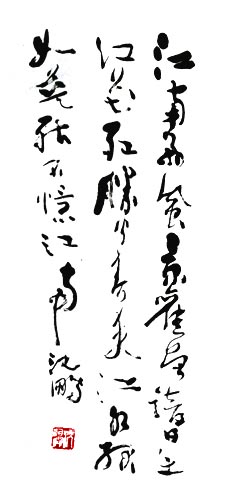 江南好風景舊曾諳日出
江花紅勝火春來江水綠
如藍能不憶江南 沈鵬